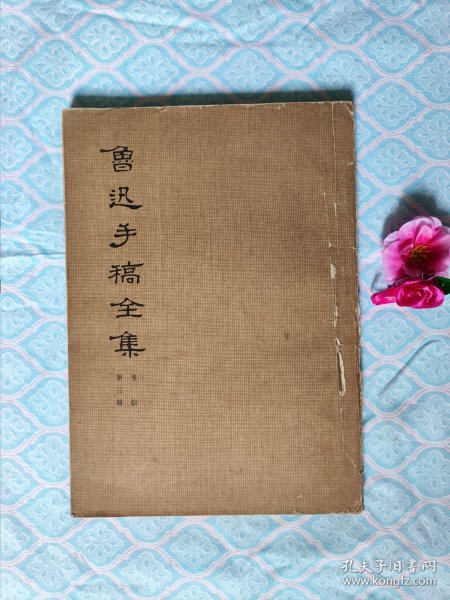 鲁迅手稿全集
书信
第三册
孔夫子旧书网
www.kongfz.com